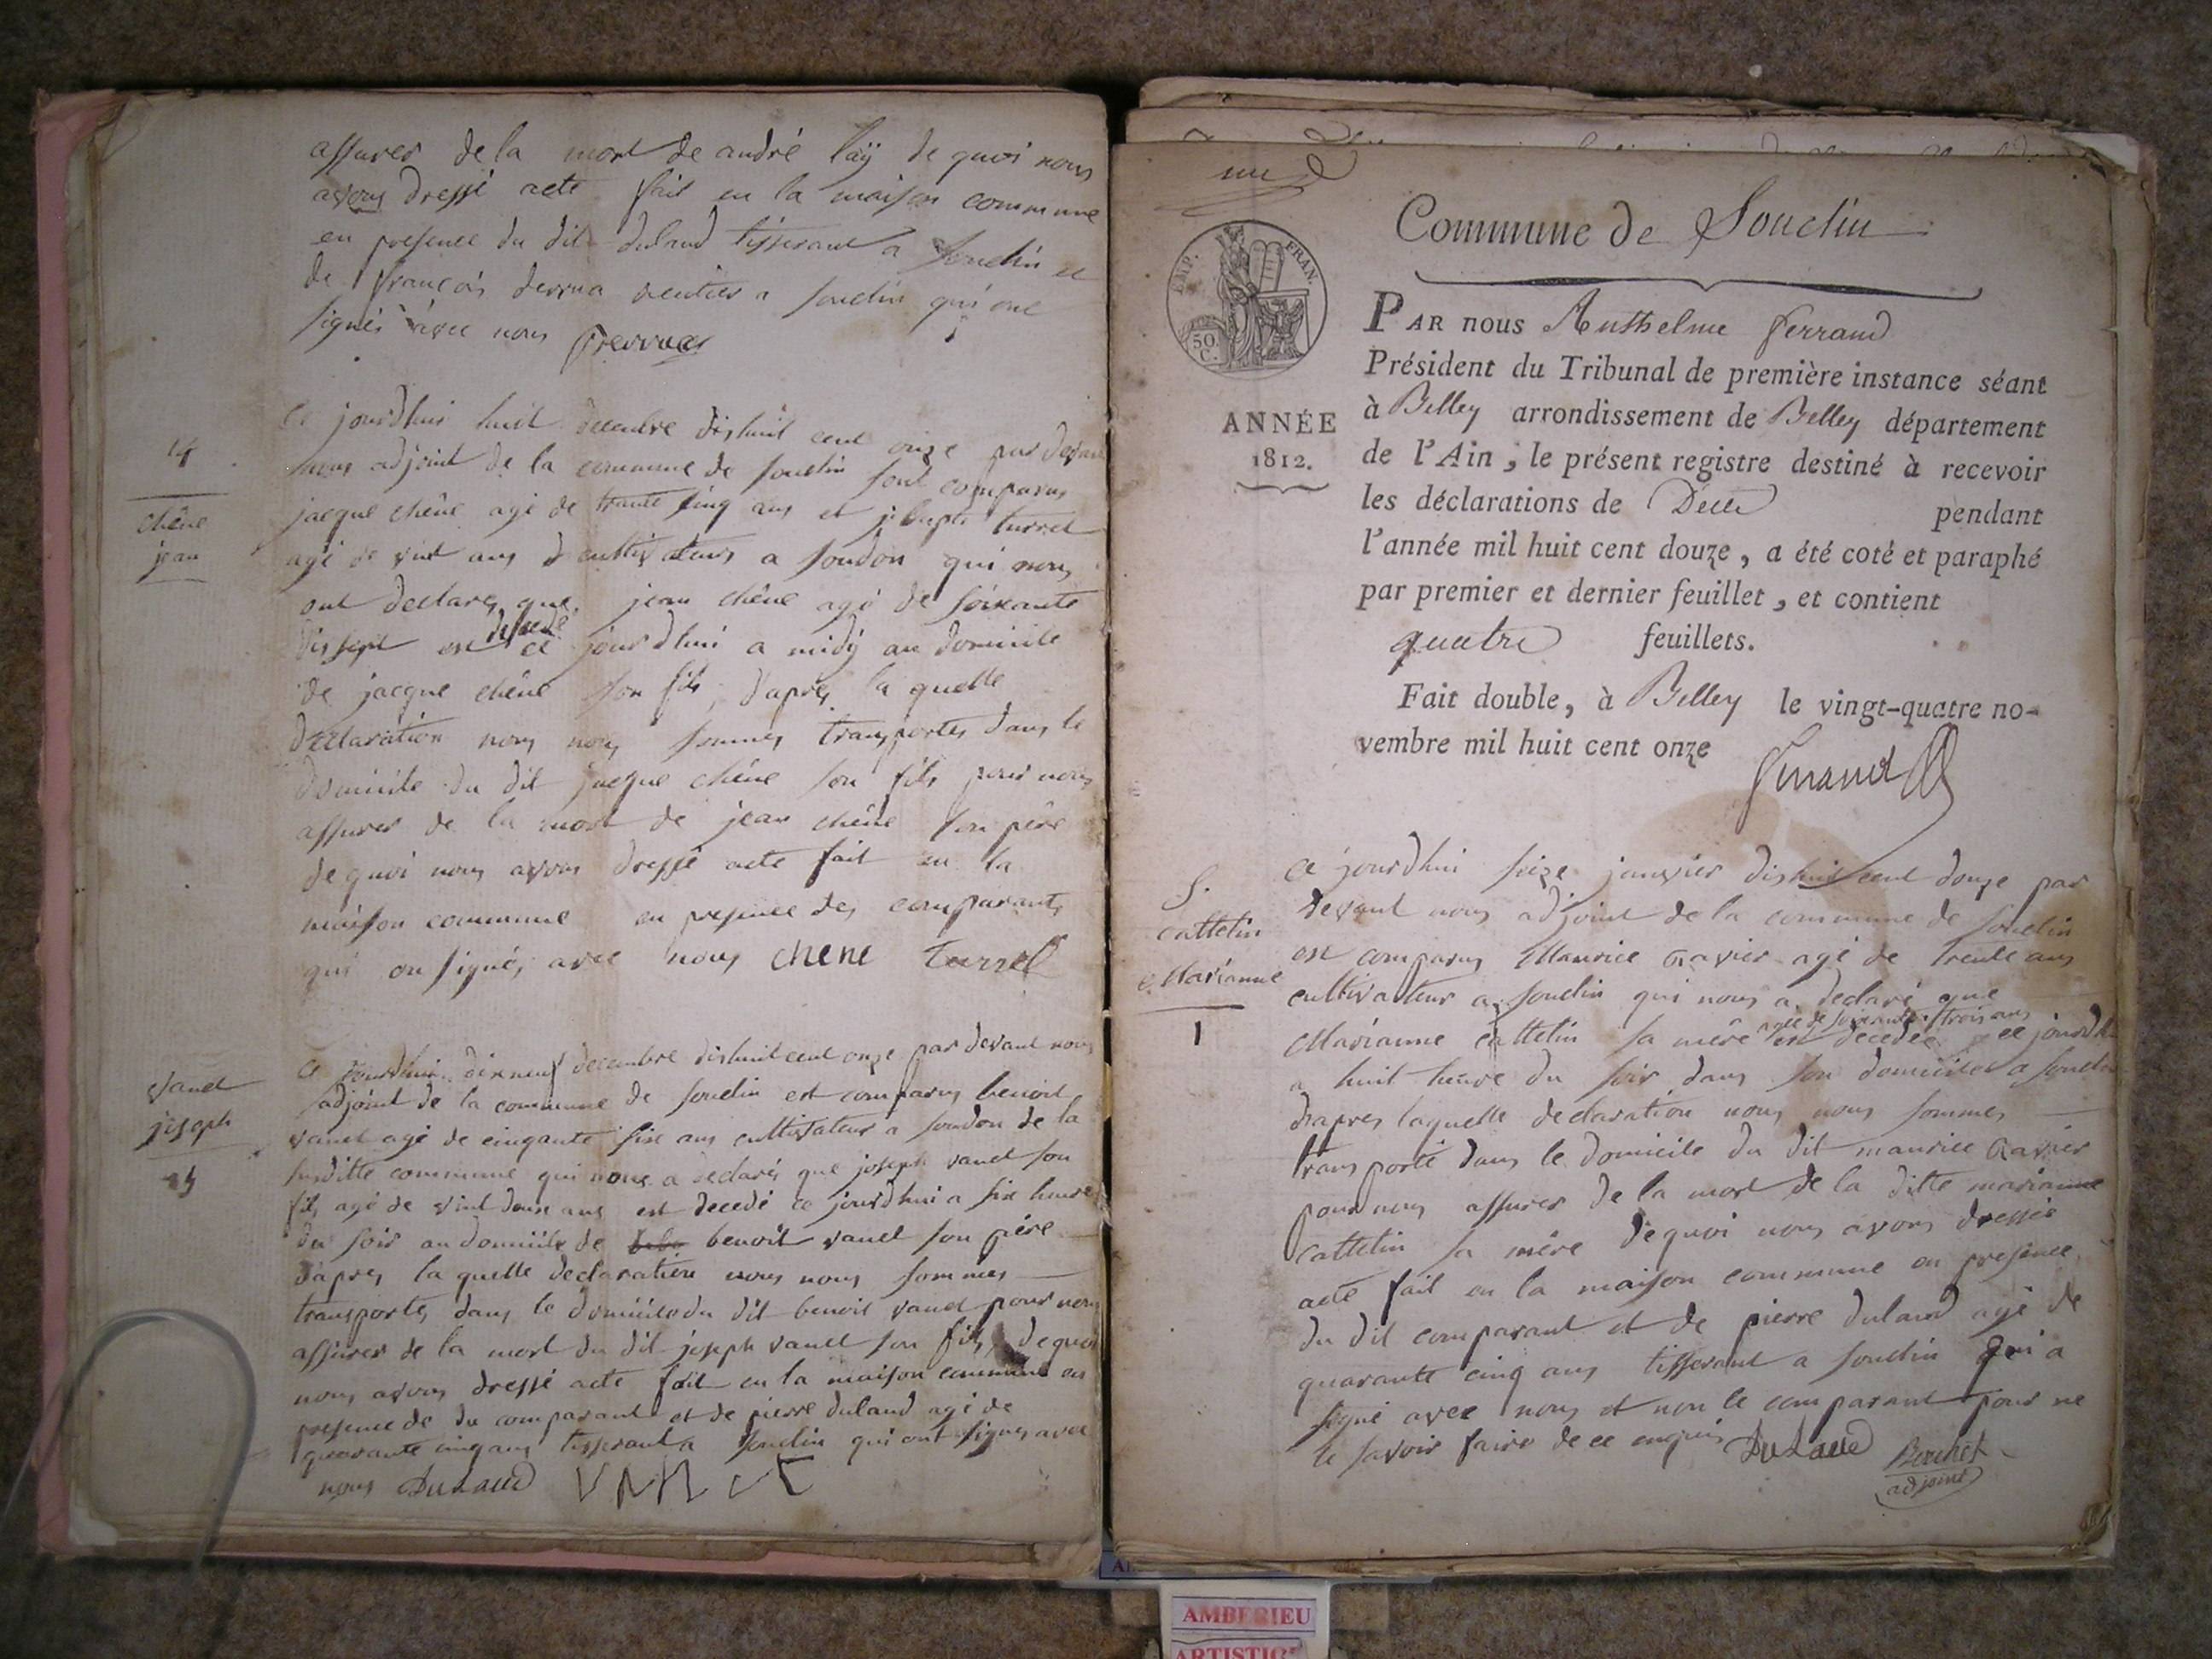 assurer de la mort de andré laÿ de quoi nous
avons dressé acte fait en la maison commune
en presence du dit dulaud tisserant a souclin et
de françois derrua rentier a souclin qui ont
signés avec nous
14
chêne
jean
Ce jourdhui huit decembre dishuit cent onze par devant
nous adjoint de la commune de souclin sont comparus
jacque chêne agé de trante cinq ans et turrel
agé de vint ans cultivateurs a soudon qui nous
ont declarés que jean chêne agé de soixante
dis sept est decedé ce jourdhui a midy au domicile
de jacque chêne son fils, d'apres la quelle
declaration nous nous sommes transportés dans le
domicile du dit jacque chêne son fils pour nous
assurer de la mort de jean chêne son père
de quoi nous avons dressé acte fait en la
maison commune en presence des comparants
qui on signés avec nous chene turrel
vanel
joseph
15
Ce jourdhui dixneuf decembre dishuit cent onze par devant nous
adjoint de la commune de souclin est comparus benoit
vanel agé de cinquante sixe ans cultivateur a soudon de la
susditte commune qui nous a declarés que joseph vanel son
fils agé de vint deux ans est decedé ce jourdhui a six heures
du soir au domicile de benoit vanel son père
d'apres la quelle declaration nous nous sommes
transportés dans le domicile du dit benoit vanel pour nous
assurer de la mort du dit joseph vanel son fils, de quoi
nous avons dressé acte fait en la maison commune en
presence de du comparant et de pierre dulaud agé de
quarante cinq ans tisserant a souclin qui ont signés avec
nous DuLaud
Commune de Souclin
EMP. FRAN.
50.
C.
ANNÉE
1812.
PAR nous Anthelme ferrand
Président du Tribunal de première instance séant
à Belley arrondissement de Belley département
de l'Ain ; le présent registre destiné à recevoir
les déclarations de Décès pendant
l'année mil huit cent douze, a été coté et paraphé
par premier et dernier feuillet, et contient
quatre feuillets.
Fait double, à Belley le vingt-quatre no-
vembre mil huit cent onze
cattelin
Marianne
1
ce jourdhui seize janvier dishuit cent douze par
devant nous adjoint de la commune de souclin
est comparus Maurice ravier agé de trente ans
cultivateur a souclin qui nous a declaré que
agée de soixante trois ans
Marianne cattelin sa mère est decedée ce jourdh
a huit heure du soir dans son domicile a souclin
d'apres laquelle declaration nous nous sommes
transporté dans le domicile du dit maurice ravier
pour nous assurer de la mort de la ditte marianne
cattelin sa mère de quoi nous avons dressés
acte fait en la maison commune en presence
du dit comparant et de pierre dulaud agé de
quarante cinq ans tisserant a souclin qui a
signé avec nous et non le comparant pour ne
le savoir faire de ce enquis DuLaud
adjoint
AMBERIEU